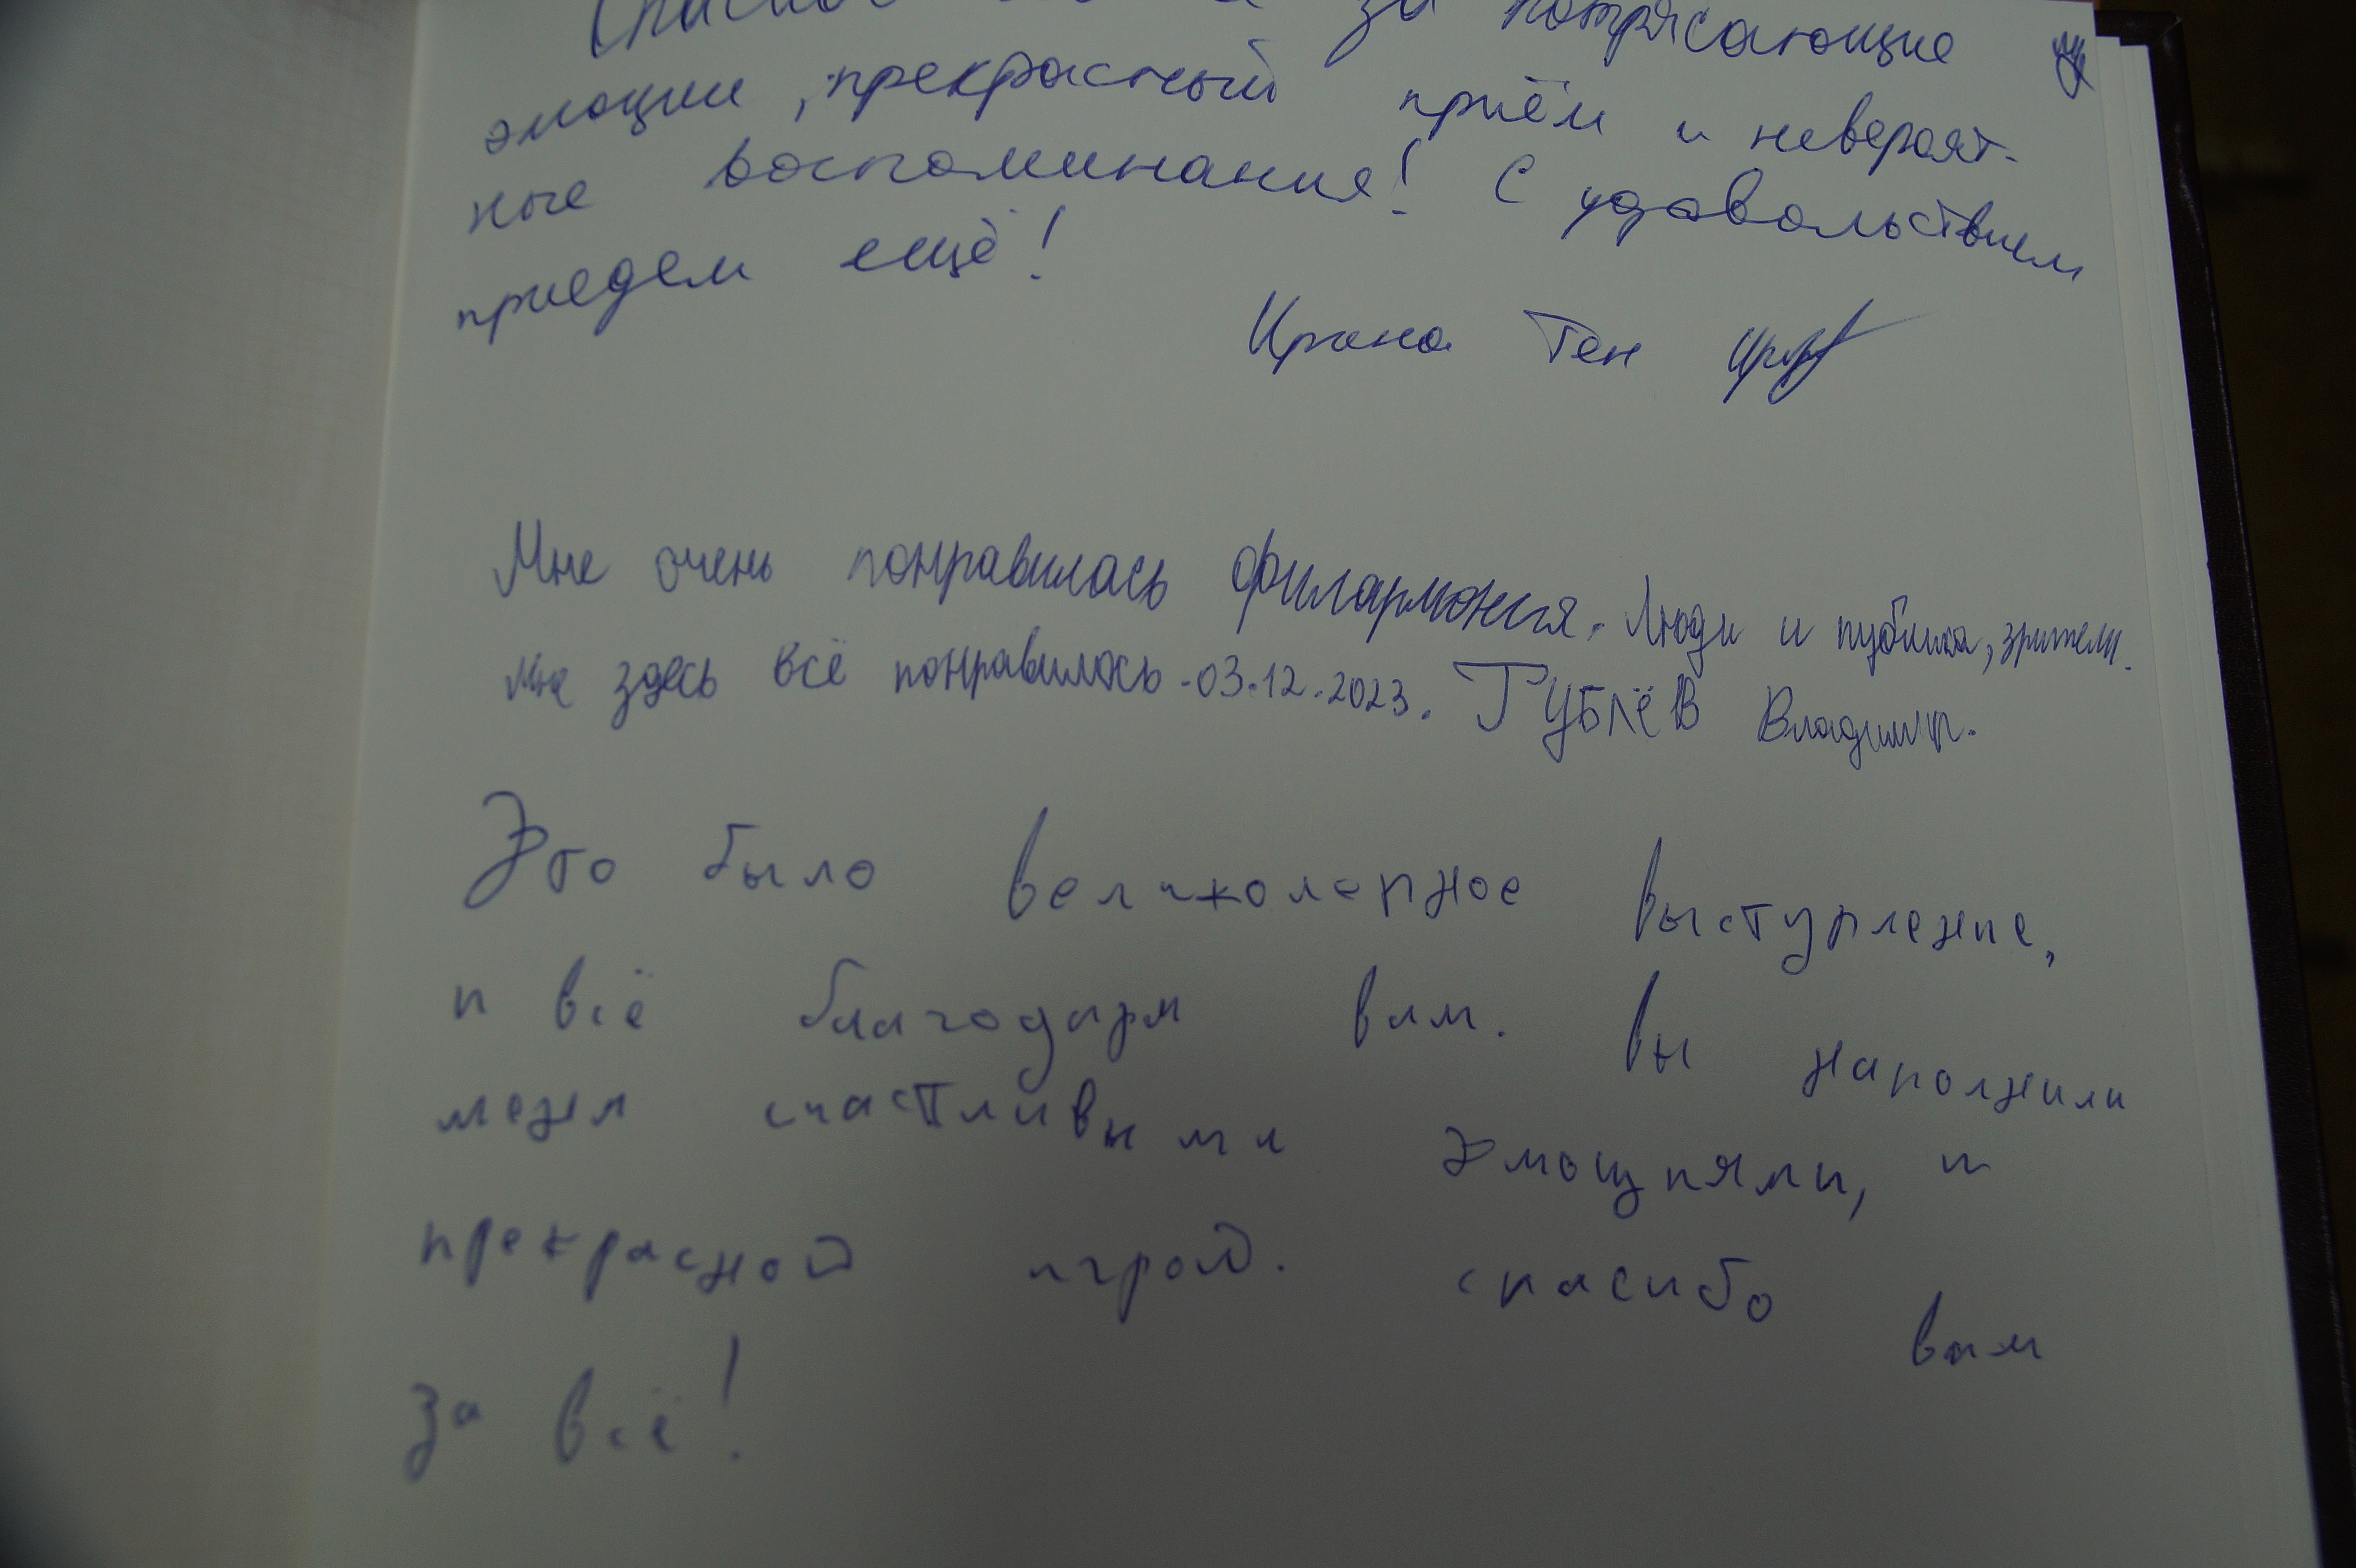 за потрясающие
эмоции, прекрасный приём и невероят-
ные воспоминания! С удовольствием
приедем ещё!
Ирина Тен
Мне очень понравилась филармония. Люди и публика, зрители.
Мне здесь всё понравилось. 03.12.2023. ГУБЛЁВ Владимир.
Это было великолепное выступление,
и всё благодаря вам. Вы наполнили
меня счастливыми эмоциями, и
прекрасной игрой. спасибо вам
за всё!